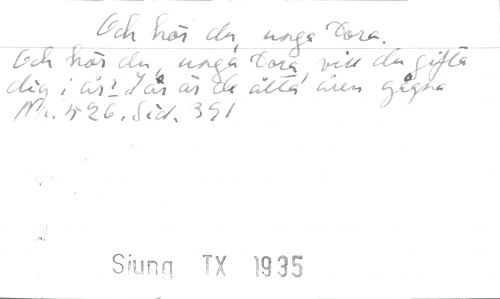 Och hör du, unga Dora.
Och hör du, unga Dora, vill du gifta
dig i år? I år är de åtta åren gågna
Nr. 526. Sid. 391
Sjung TX 1935